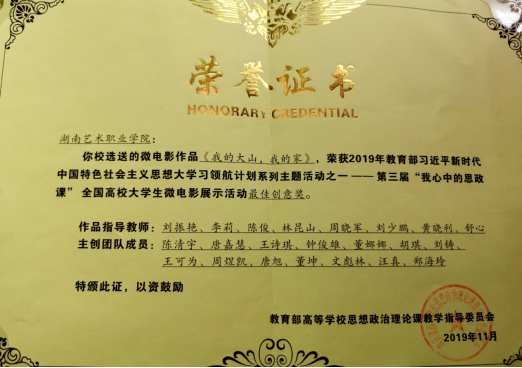 荣誉证书
HONORARY CREDENTIAL
湖南艺术职业学院：
你校选送的微电影作品《我的大山，我的家》，荣获2019年教育部习近平新时代
中国特色社会主义思想大学习领航计划系列主题活动之一——第三届“我心中的思政
课”全国高校大学生微电影展示活动最佳创意奖。
作品指导教师：刘振艳、李莉、陈俊、林昆山、周晓军、刘少鹏、黄晓利、舒心
主创团队成员：陈清宇、唐嘉慧、王诗琪、钟俊雄、董娜娜、胡琪、刘铸、
王可为、周煜凯、唐旭、董坤、文彪林、汪真、郑海玲
特颁此证，以资鼓励
教育部高等学校思想政治理论课教学指导委员会
2019年11月